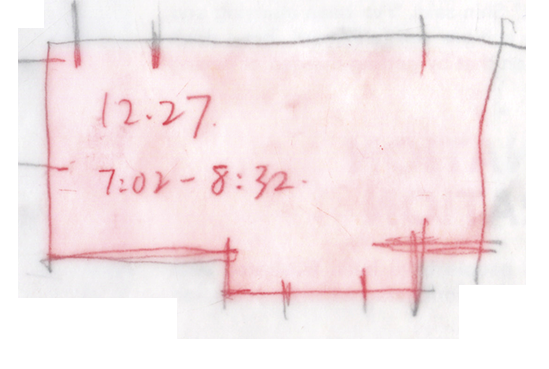 12.27.
7:02-8:32.